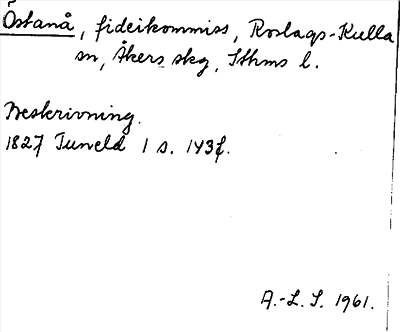 Östanå, fideikommiss, Roslags-Kulla
sn, Åkers skg, Sthms l.
Beskrivning.
1827 Tuneld 1 s. 143f.
A.-L. S. 1961.